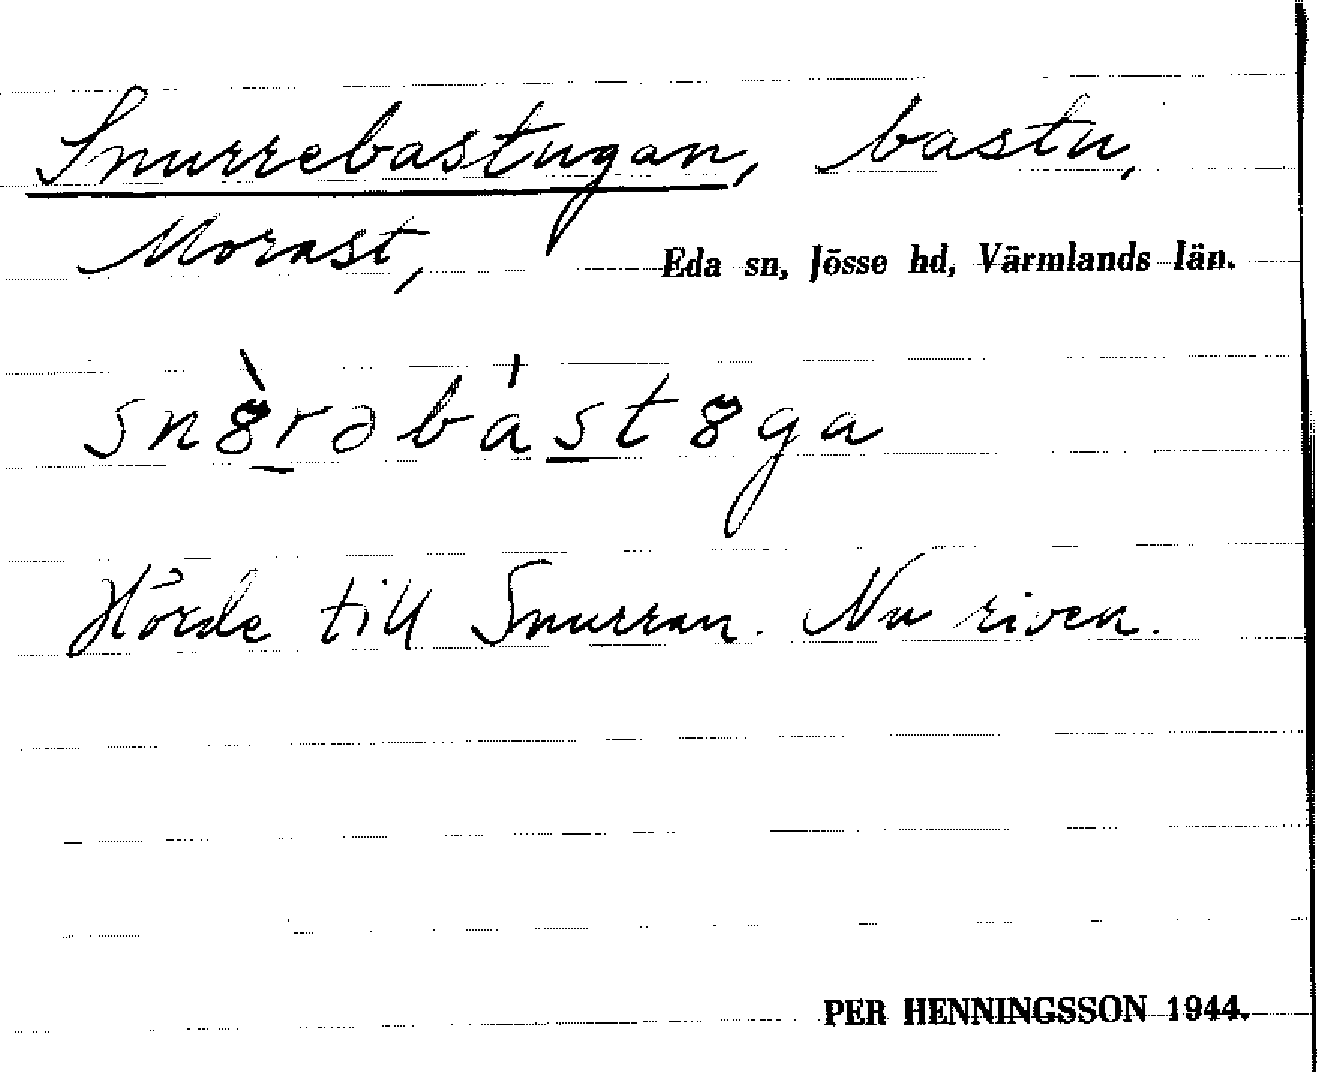 Snurrebastugan, bastu,
Morast, Eda sn, Jösse hd, Värmlands län.
snȣ̀r̲əbás̲tȣga
Hörde till Snurran. Nu riven.
PER HENNINGSSON 1944.